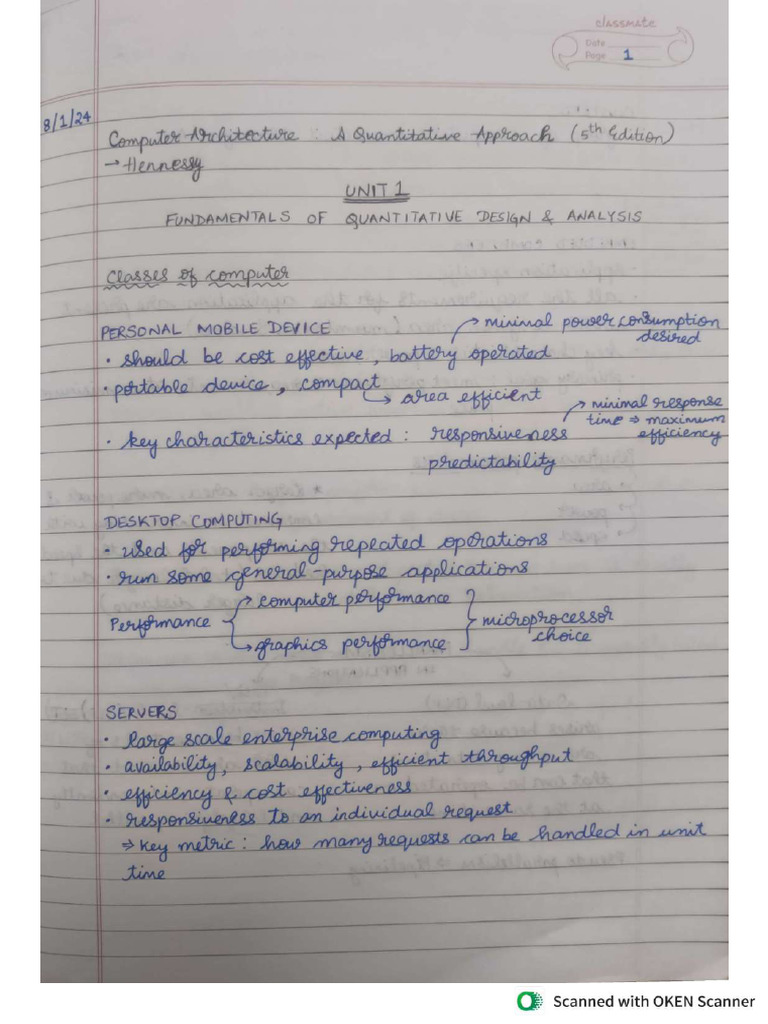 classmate
Date
Page 1
8/1/24
Computer Architecture : A Quantitative Approach (5th Edition)
→ Hennessy
UNIT 1
FUNDAMENTALS OF QUANTITATIVE DESIGN & ANALYSIS
Classes of computer
PERSONAL MOBILE DEVICE
→ minimal power consumption
desired
• should be cost effective, battery operated
• portable device, compact
→ area efficient
→ minimal response
time ⇒ maximum
efficiency
• key characteristics expected : responsiveness
predictability
DESKTOP COMPUTING
• used for performing repeated operations
• run some general-purpose applications
Performance { → computer performance
→ graphics performance } microprocessor
choice
SERVERS
• large scale enterprise computing
• availability, scalability, efficient throughput
• efficiency & cost effectiveness
• responsiveness to an individual request
⇒ key metric : how many requests can be handled in unit
time
Scanned with OKEN Scanner